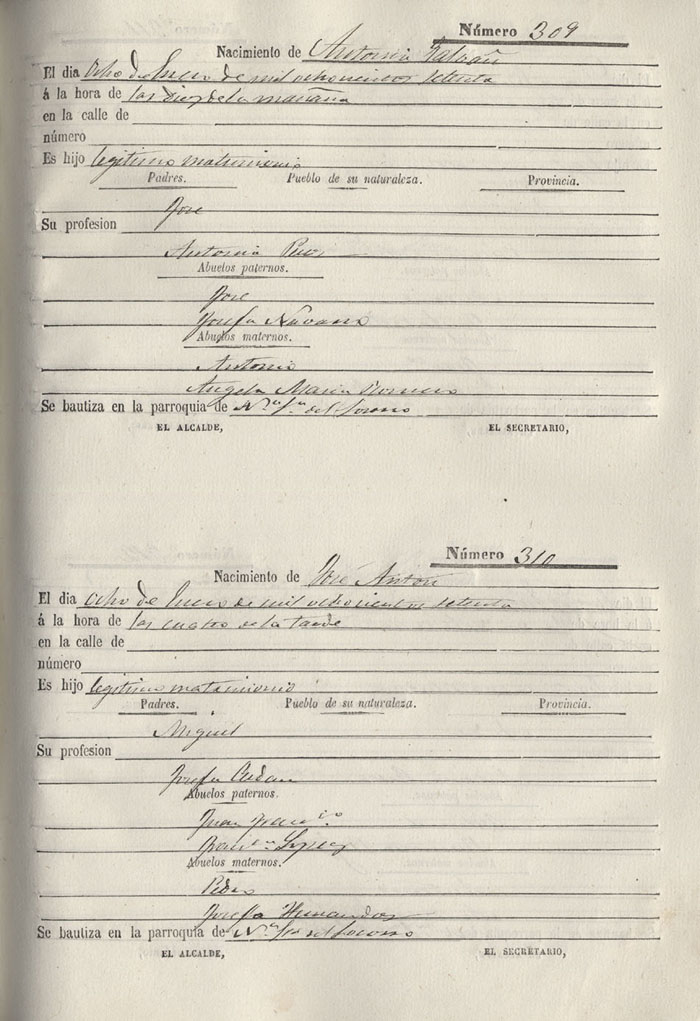 Número 309
Nacimiento de Antonia Galvañ
El dia ocho de Enero de mil ochocientos setenta
á la hora de las diez de la mañana
en la calle de
número
Es hijo legitimo matrimonio
Padres. Pueblo de su naturaleza. Provincia.
José
Su profesion
Antonia
Abuelos paternos.
José
Josefa Navarro
Abuelos maternos.
Antonio
Angela Maria Romero
Se bautiza en la parroquia de N.ª S.ª del Socorro
EL ALCALDE, EL SECRETARIO,
Número 310
Nacimiento de José Anton
El dia ocho de Enero de mil ochocientos setenta
á la hora de las cuatro de la tarde
en la calle de
número
Es hijo legitimo matrimonio
Padres. Pueblo de su naturaleza. Provincia.
Miguel
Su profesion
Josefa
Abuelos paternos.
Juan Fran.co
Fran.ca Lopez
Abuelos maternos.
Pedro
Josefa Hernandez
Se bautiza en la parroquia de N.ª Sra del Socorro
EL ALCALDE, EL SECRETARIO,